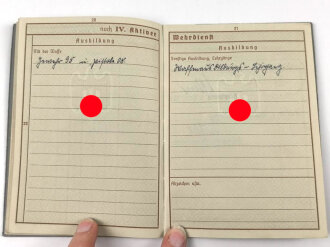 20
noch IV. Aktiver
Ausbildung
Mit der Waffe
Gewehr 98 u. Pistole 08
21
Wehrdienst
Ausbildung
Sonstige Ausbildung, Lehrgänge
Lehrgang
Abzeichen usw.